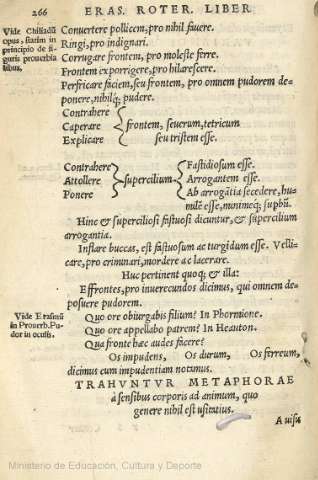 266 ERAS. ROTER. LIBER
Vide Chiliadū
opus, statim in
principio de fi-
guris prouerbia
libus.
Conuertere pollicem, pro nihil fauere.
Ringi, pro indignari.
Corrugare frontem, pro moleste ferre.
Frontem exporrigere, pro hilarescere.
Perfricare faciem, seu frontem, pro omnem pudorem de-
ponere, nihilq; pudere.
Contrahere
Caperare frontem, seuerum, tetricum
Explicare seu tristem esse.
Contrahere Fastidiosum esse.
Attollere supercilium Arrogantem esse.
Ponere Ab arrogātia secedere, hu-
milē esse, minimeq; supbū.
Hinc & superciliosi fastuosi dicuntur, & supercilium
arrogantia.
Inflare buccas, est fastuosum ac turgidum esse. Velli-
care, pro criminari, mordere ac lacerare.
Huc pertinent quoq; & illa:
Effrontes, pro inuerecundos dicimus, qui omnem de-
posuere pudorem.
Vide Erasmū
in Prouerb. Pu-
dor in oculis.
Quo ore obiurgabis filium? In Phormione.
Quo ore appellabo patrem? In Heauton.
Qua fronte hæc audes facere?
Os impudens, Os durum, Os ferreum,
dicimus cum impudentiam notamus.
TRAHVNTVR METAPHORAE
à sensibus corporis ad animum, quo
genere nihil est usitatius.
A uisu
Ministerio de Educación, Cultura y Deporte